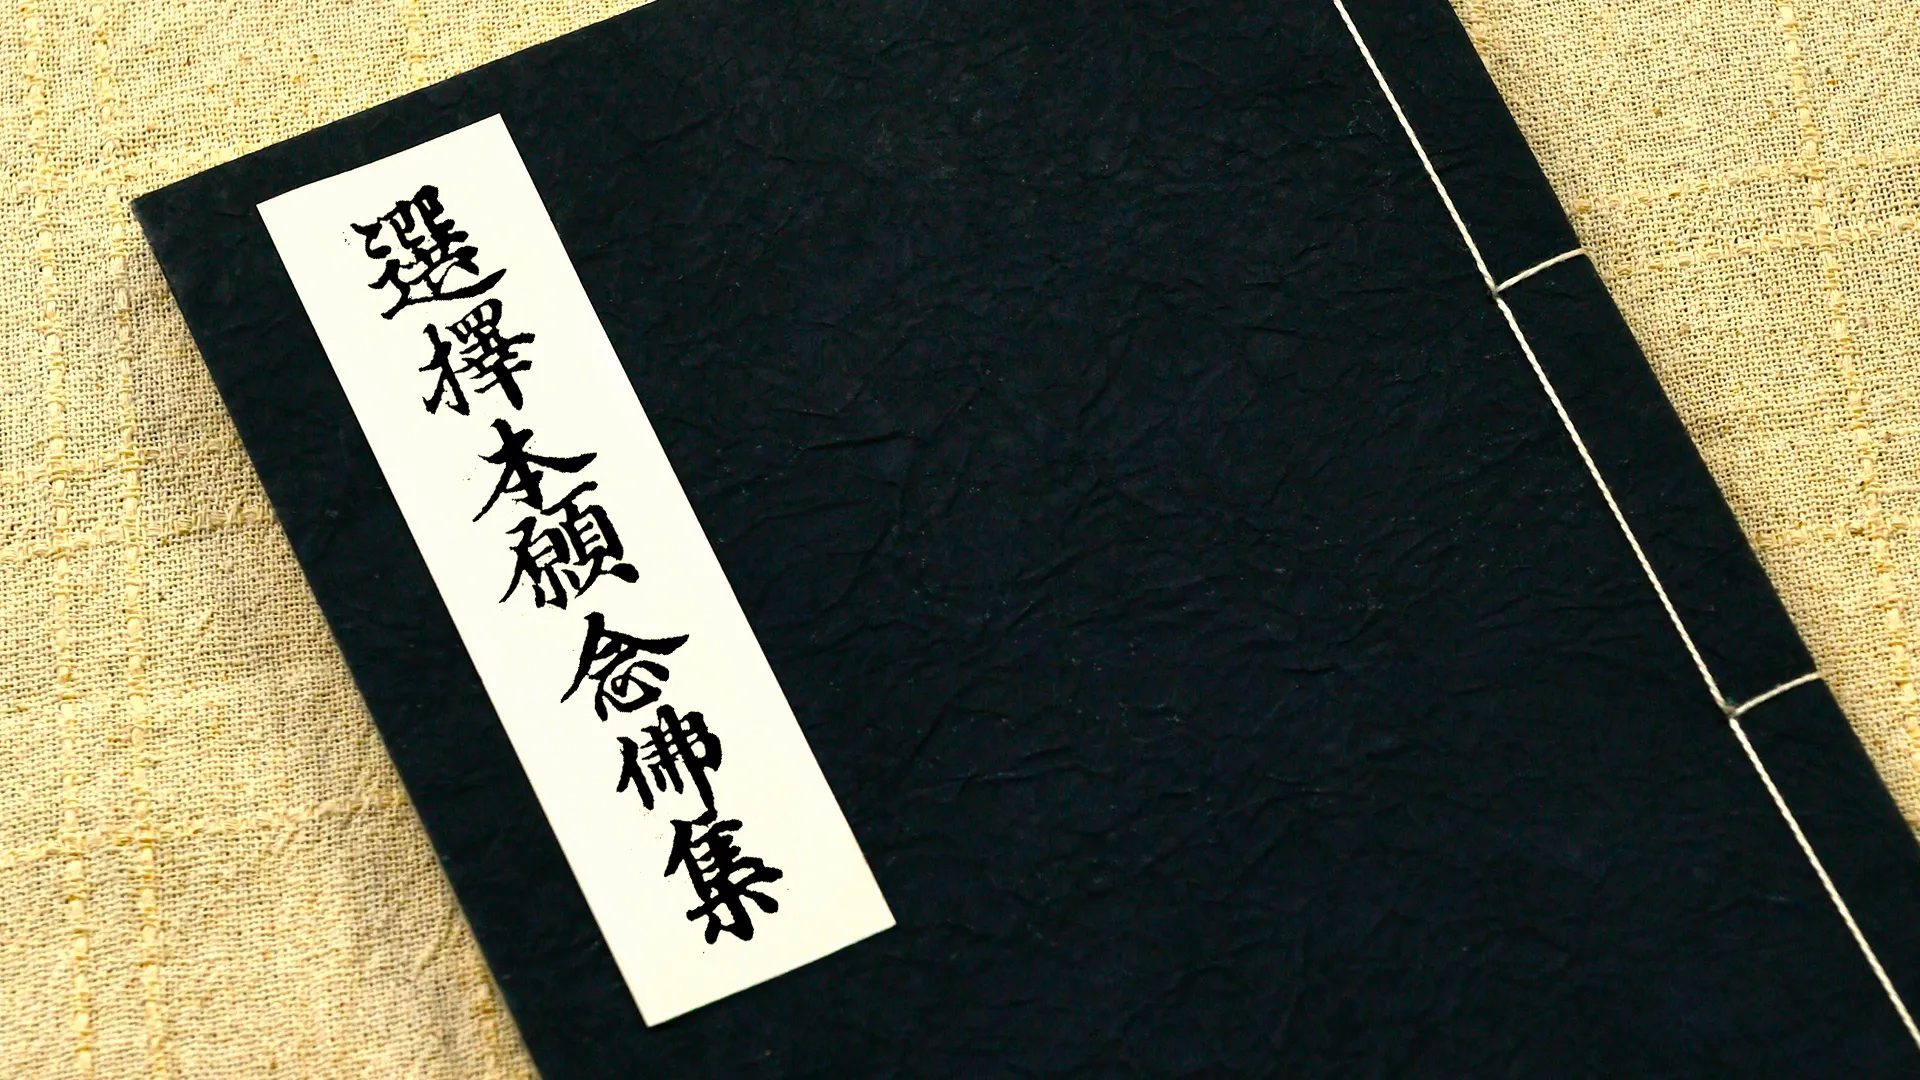 選擇本願念佛集